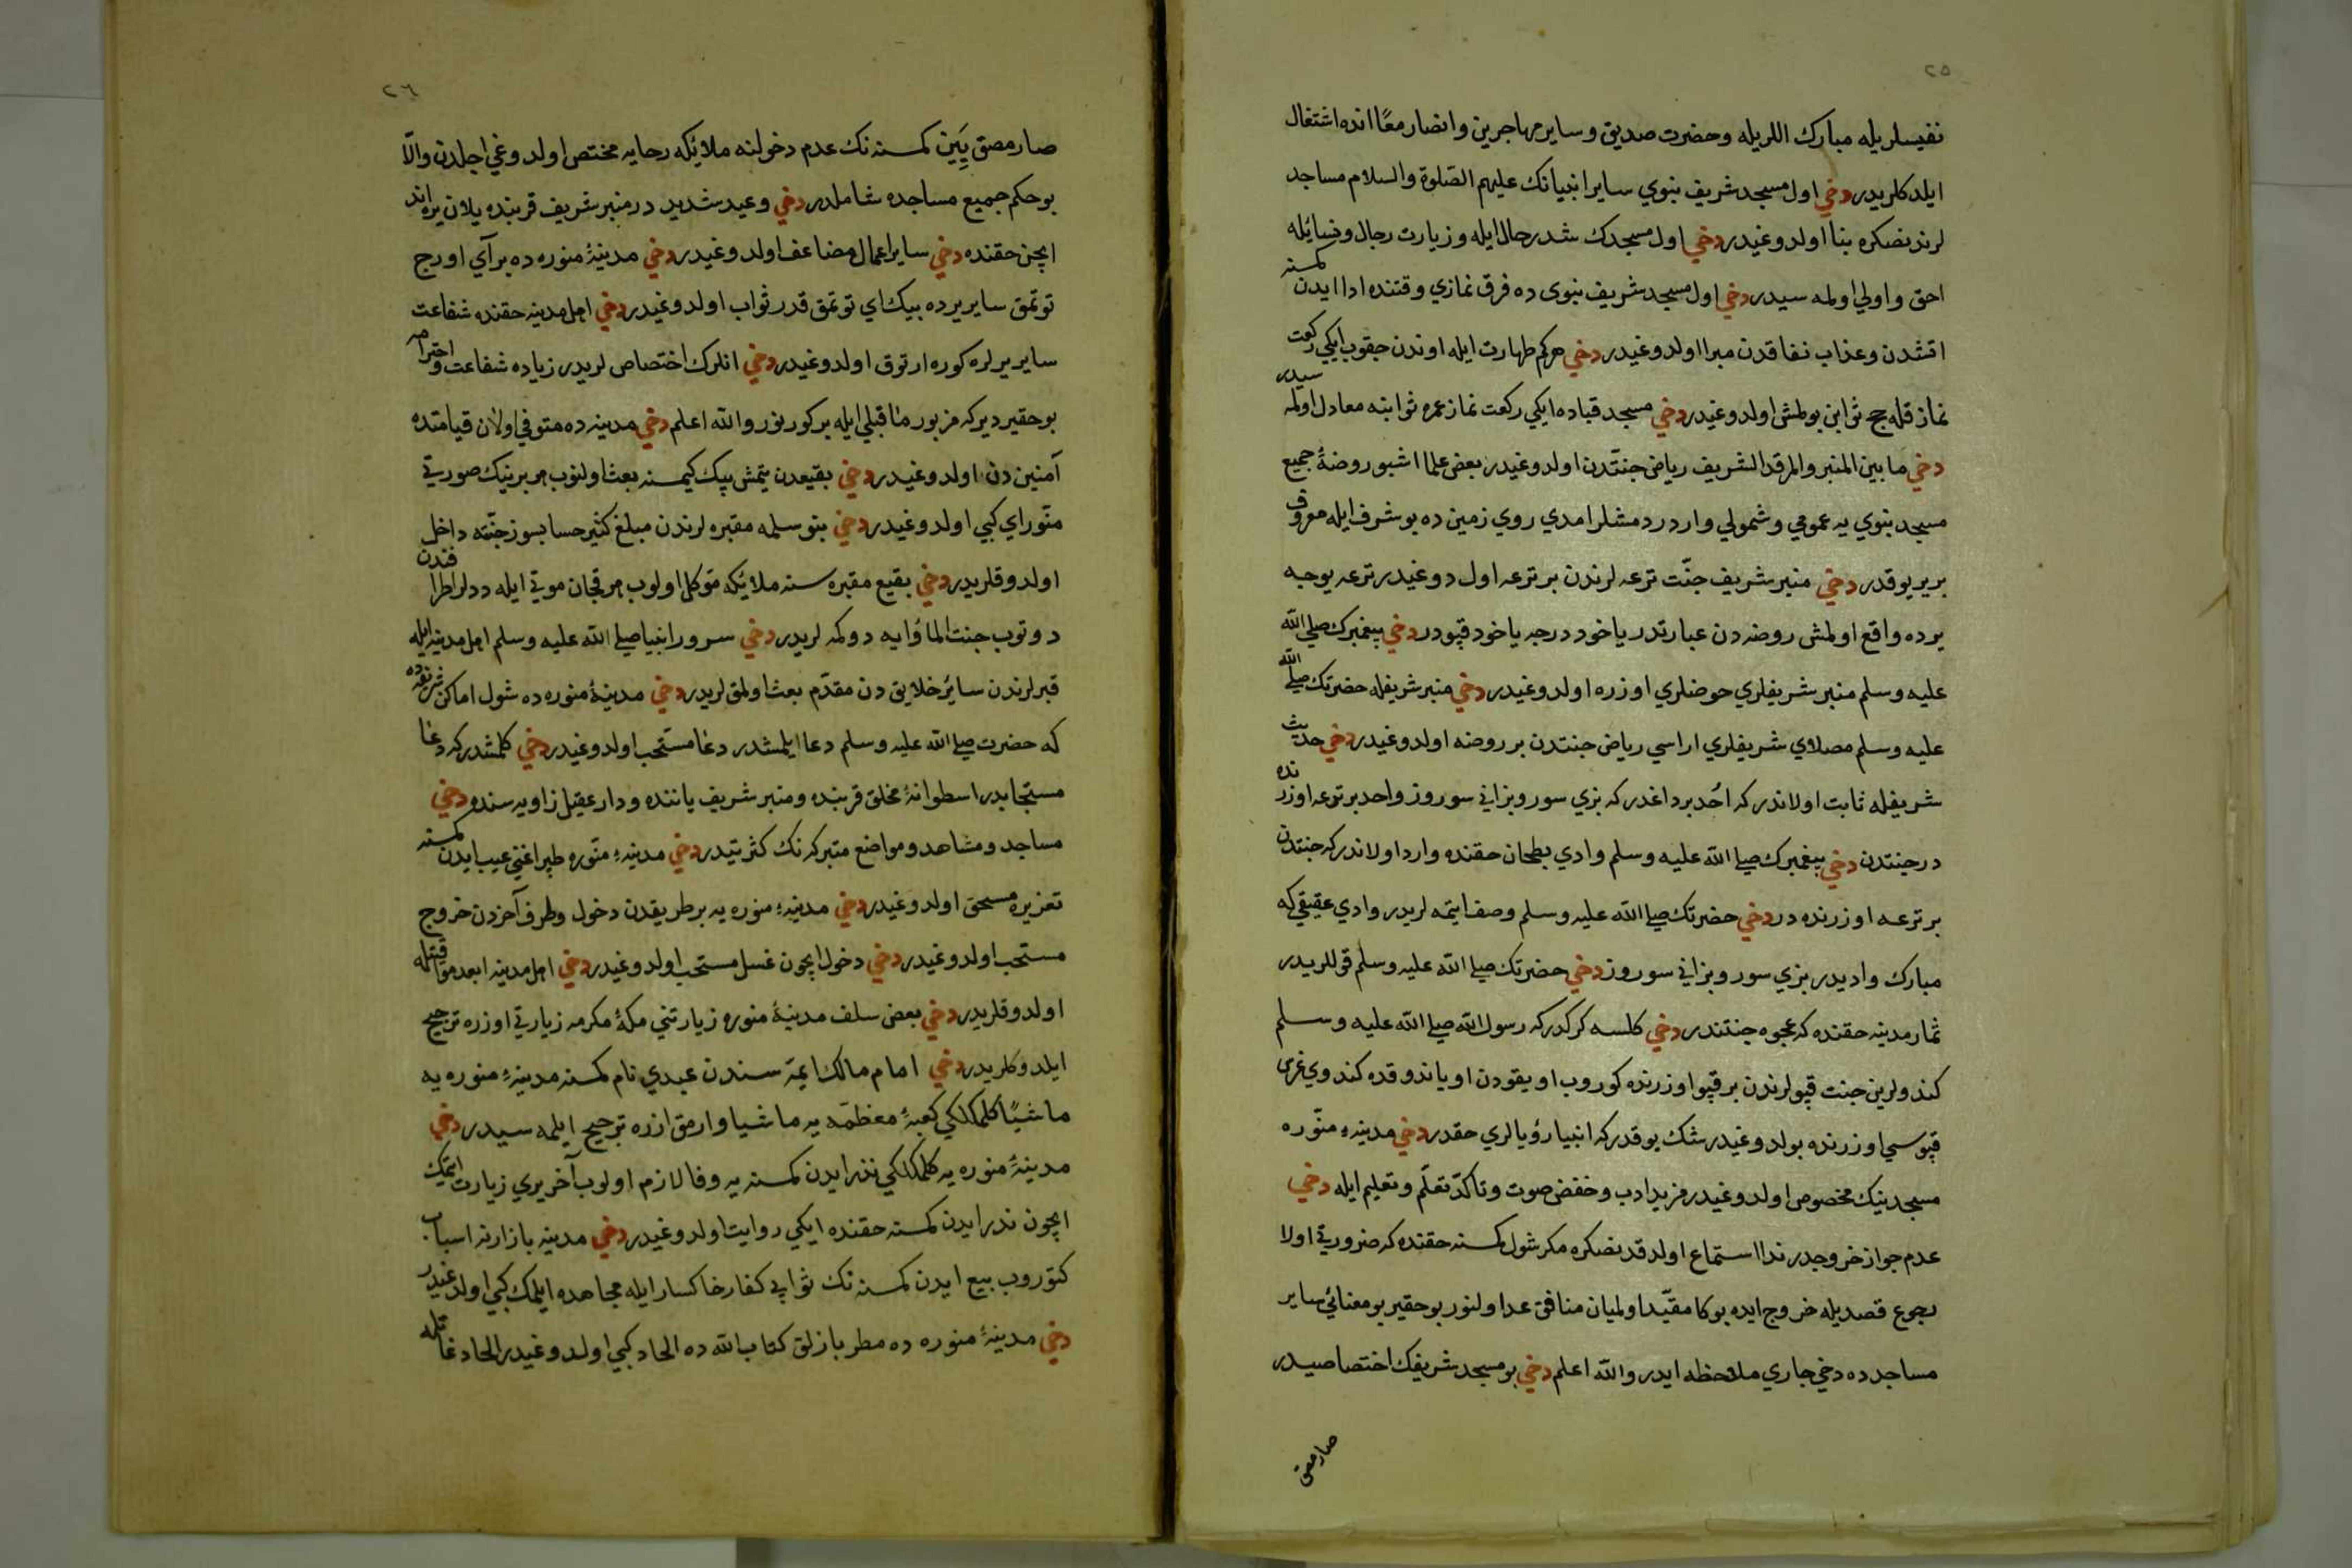 ٢٥
نفيسلريله مبارك اللريله وحضرت صديق وساير مهاجرين وانصار معًا انده اشتغال
ايلدكلريدر دخي اول مسجد شريف نبوي ساير انبيانك عليهم الصّلوة والسلام مساجد
لرندنصكره بنا اولدوغيدر دخي اول مسجدك شدر حال ايله وزيارت رجال ونسائيله
احق واولي اولمه سيدر دخي اول مسجد شريف نبوى ده فرق نمازي وقتنده ادا ايدن كمسنه
اتشدن وعذاب نفاقدن مبرا اولدوغيدر دخي هركم طهارت ايله اوندن چقوب ايكي ركعت
نماز قله حج ثوابن بولمش اولدوغيدر دخي مسجد قباده ايكي ركعت نماز عمره ثوابنه معادل اولمه سيدر
دخي مابين المنبر والمرقد الشريف رياض جنّتدن اولدوغيدر بعض علما اشبو روضۀ جميع
مسجد نبوي يه عمومي وشمولي واردر دمشلر امدي روي زمين ده بو شرف ايله معروف
بر ير يوقدر دخي منبر شريف جنّت ترعه لرندن بر ترعه اول دوغيدر ترعه يوجه
يرده واقع اولمش روضه دن عبارتدر ياخود درجه ياخود قپودر دخي پيغمبرك صلي الله
عليه وسلم منبر شريفلري حوضلري اوزره اولدوغيدر دخي منبر شريفله حضرتك صلي الله
عليه وسلم مصلاي شريفلري اراسي رياض جنتدن بر روضه اولدوغيدر دخي حديث
شريفله ثابت اولاندر كه اُحد بر داغدر كه بزي سور وبز اني سوروز واحد بر ترعه اوزرنده
در جنتدن دخي پيغمبرك صلي الله عليه وسلم وادي بطحان حقنده وارد اولاندر كه جنتدن
بر ترعه اوزرنده در دخي حضرتك صلي الله عليه وسلم وصف ايتمه لريدر وادي عقيقي كه
مبارك واديدر بزي سور وبز اني سوروز دخي حضرتك صلي الله عليه وسلم قوللريدر
ثمار مدينه حقنده كه عجوه جنتندر دخي كلسه كركدر كه رسول الله صلي الله عليه وسلم
كندولرين جنت قپولرندن بر قپو اوزرنده كوروب اويقودن اوياندوقده كندوي غرس
قپوسي اوزرنده بولدوغيدر شك يوقدر كه انبيا رؤيالري حقدر دخي مدينهٔ منوّره
مسجدينك مخصوص اولدوغيدر مزيد ادب وخفض صوت وتأكدّ تعلّم وتعليم ايله دخي
عدم جواز خروجدر ندا استماع اولدقدنصكره مكر شول كمسنه حقنده كه ضرورتي اولا
رجوع قصديله خروج ايده بوكا مقيّد اولميان منافق عد اولنور بو حقير بو معنائي ساير
مساجدده دخي جاري ملاحظه ايدر والله اعلم دخي بو مسجد شريفك اختصاصيدر
صارمصق
٢٦
صارمصق يَيَن كمسنه نك عدم دخولنه ملائيكه رحايه مختص اولدوغي اجلدن والّا
بو حكم جميع مساجده شاملدر دخي وعيد شديد در منبر شريف قربنده يلان يره اند
ايچن حقنده دخي ساير اعمال مضاعف اولدوغيدر دخي مدينۀ منوره ده بر آي اورج
توتمق ساير يرده بيك اي توتمق قدر ثواب اولدوغيدر دخي اهل مدينه حقنده شفاعت
ساير يرلره كوره ارتوق اولدوغيدر دخي انلرك اختصاص لريدر زياده شفاعت واحترامه
بو حقير دير كه مزبور ما قبلي ايله بر كورنور والله اعلم دخي مدينه ده متوفي اولان قيامتده
آمنين دن اولدوغيدر دخي بقيعدن يتمش بيك كيمسنه بعث اولنوب هر برينك صورتي
منّور اي كبي اولدوغيدر دخي بنو سلمه مقبره لرندن مبلغ كثير حسابسوز جنّته داخل
اولدوقلريدر دخي بقيع مقبره سنه ملائيكه متوكل اولوب هر قچان موتي ايله ددلر اطرافندن
دوتوب جنت المأوايه دوكمه لريدر دخي سرور انبيا صلي الله عليه وسلم اهل مدينه ايله
قبرلرندن سائر خلايق دن مقدّم بعث اولمق لريدر دخي مدينۀ منوره ده شول اماكن شريفه ده
كه حضرت صلي الله عليه وسلم دعا ايلمشدر دعا مستحب اولدوغيدر دخي كلمشدر كه دعا
مستجابدر اسطوانۀ مخلق قربنده ومنبر شريف ياننده ودار عقيل زاويه سنده دخي
مساجد ومشاهد ومواضع متبركه نك كثرتيدر دخي مدينهٔ منّوره طپراغني عيب ايدن كمسنه
تعزيره مسحق اولدوغيدر دخي مدينهٔ منوره يه بر طريقدن دخول وطرف آخردن خروج
مستحب اولدوغيدر دخي دخول ايچون غسل مستحب اولدوغيدر دخي اهل مدينه ابعد مواقيتله
اولدوقلريدر دخي بعض سلف مدينۀ منوره زيارتني مكۀ مكرمه زيارتي اوزره ترجيح
ايلدوكلريدر دخي امام مالك ايمّه سندن عبدي نام كمسنه مدينهٔ منوره يه
ماشيًا كلمكلكي كعبۀ معظمّه يه ماشيا وارمق ازره ترجيح ايلمه سيدر دخي
مدينۀ منوره يه كلمكلكي نذر ايدن كمسنه يه وفا لازم اولوب آخر يري زيارت ايتمك
ايچون نذر ايدن كمسنه حقنده ايكي روايت اولدوغيدر دخي مدينه بازارنه اسباب
كتوروب بيع ايدن كمسنه نك ثوابي كفار خاكسار ايله مجاهده ايلمك كبي اولدوغيدر
دخي مدينۀ منوره ده مطربازلق كتاب الله ده الحاد كبي اولدوغيدر الحاد